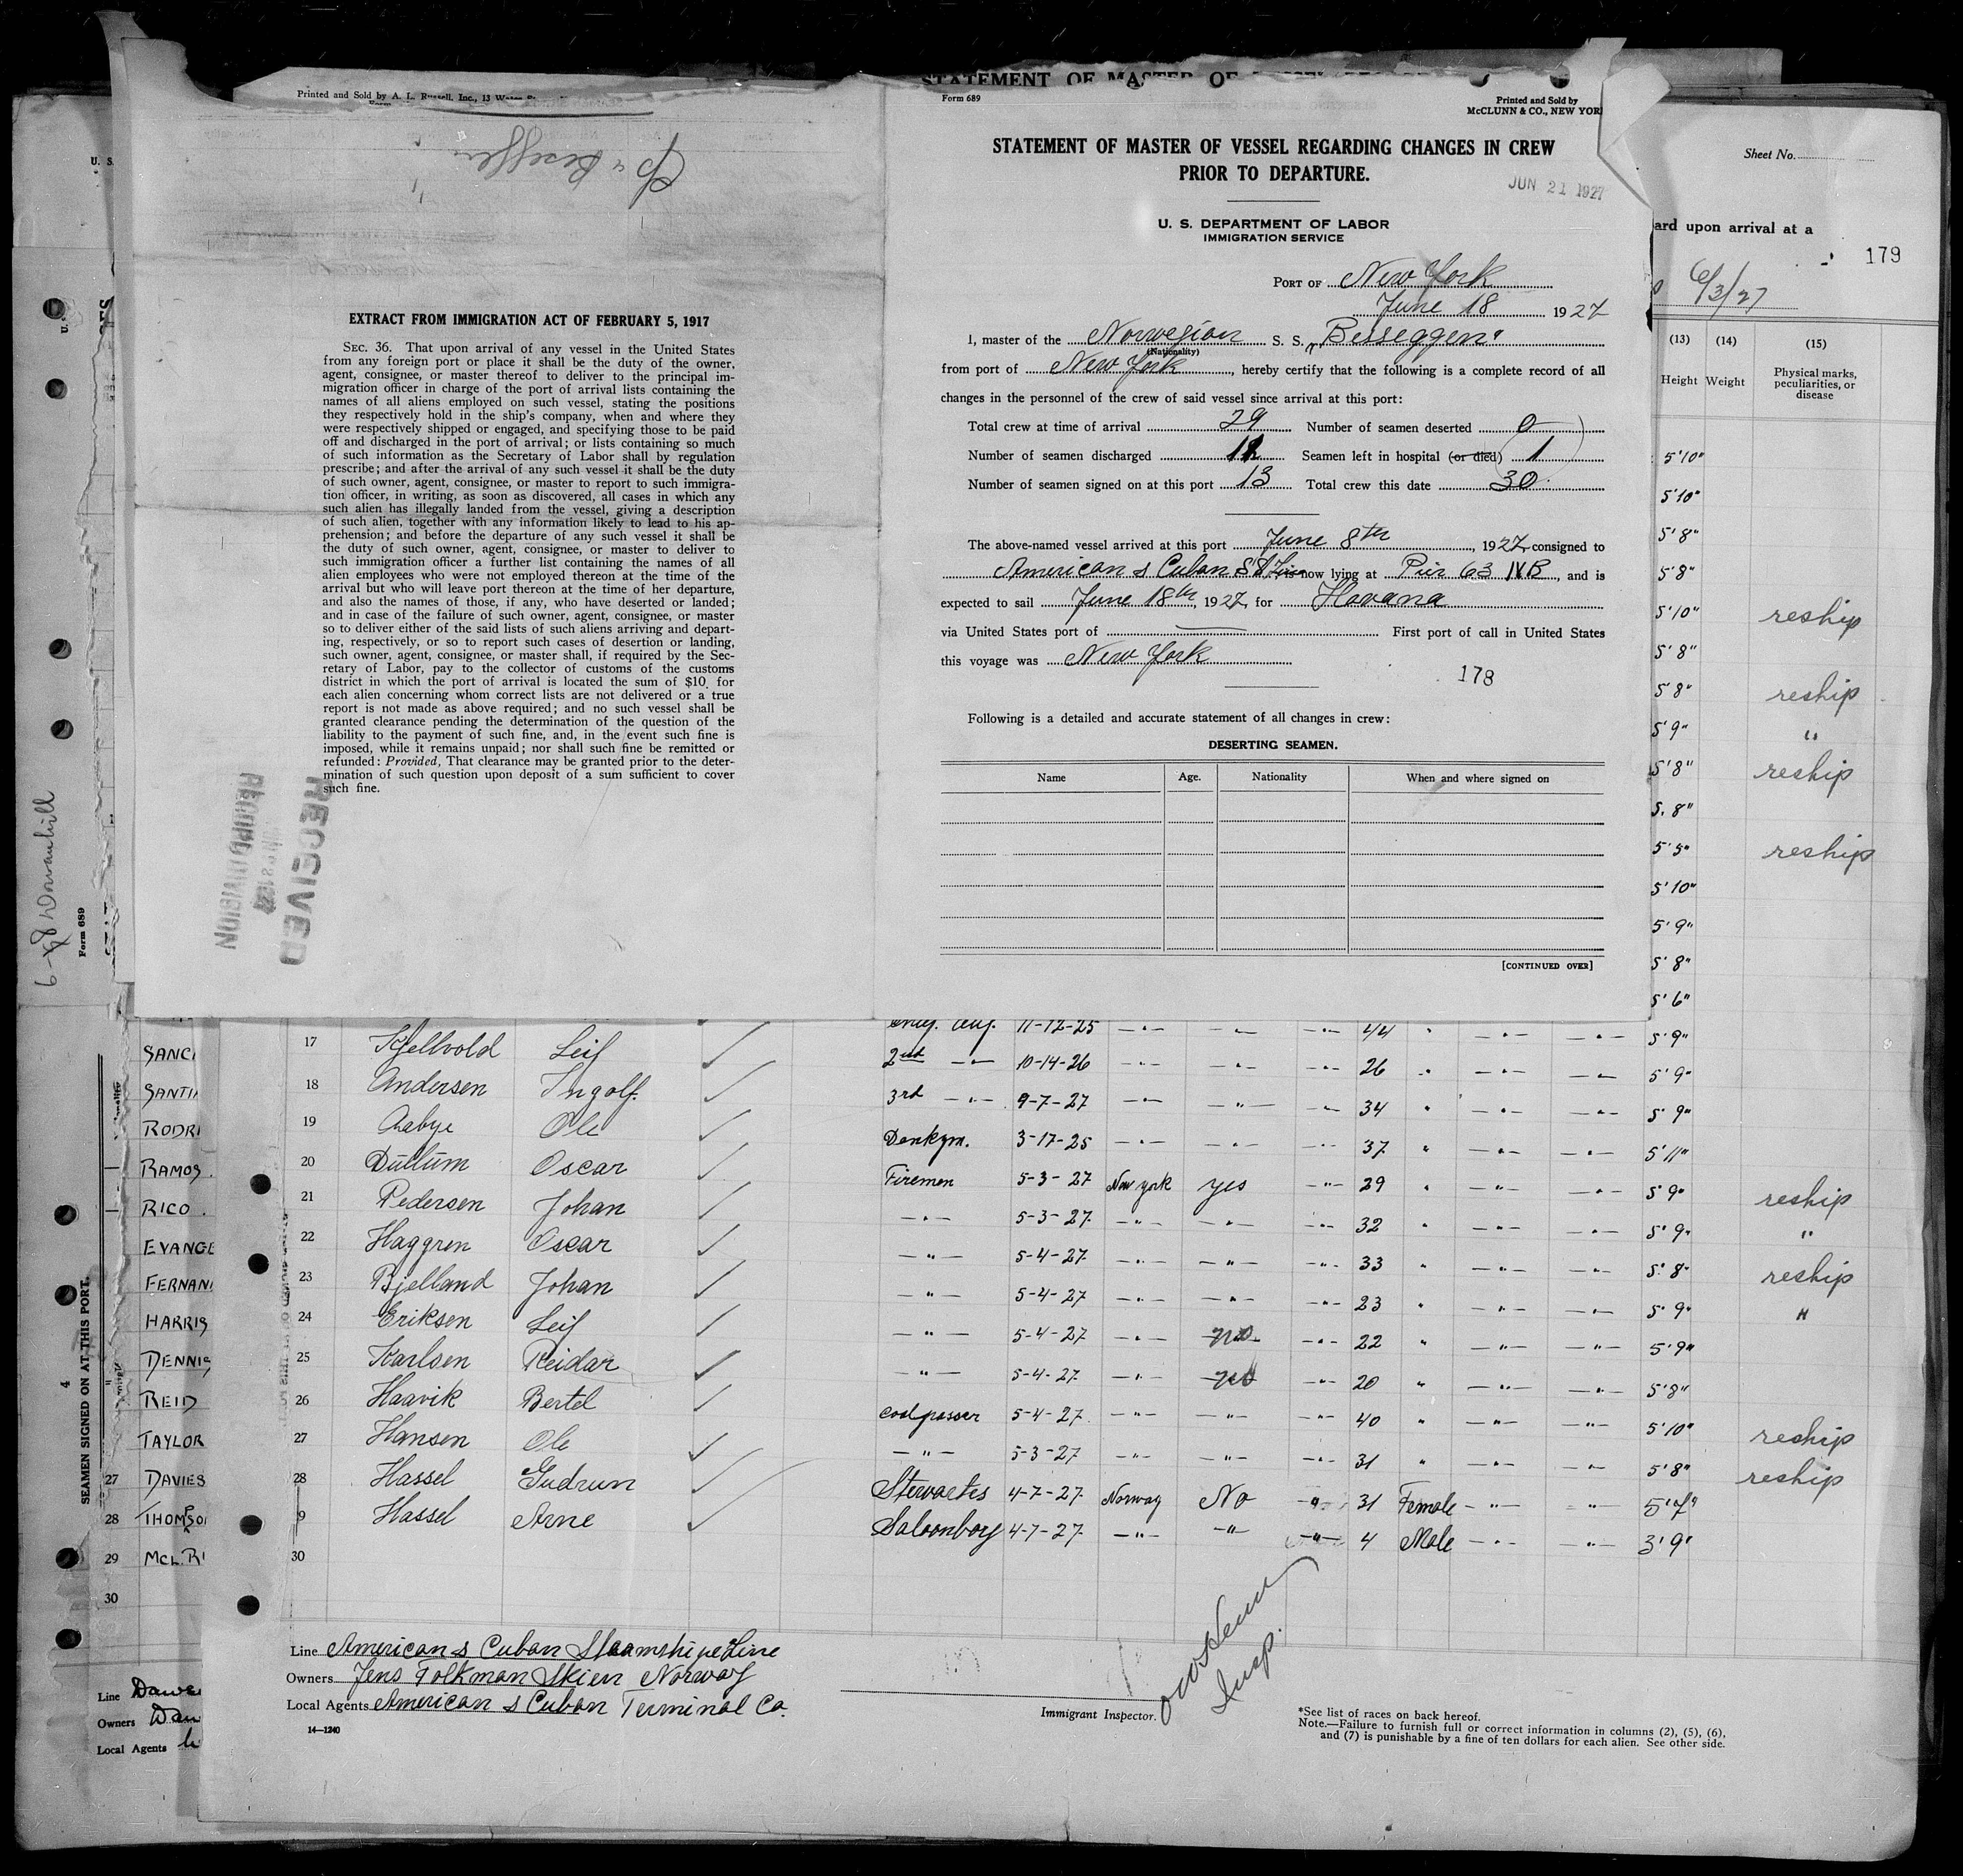 Printed and Sold by A. L. Russell, Inc., 13 Water
EXTRACT FROM IMMIGRATION ACT OF FEBRUARY 5, 1917
SEC. 36. That upon arrival of any vessel in the United States
from any foreign port or place it shall be the duty of the owner,
agent, consignee, or master thereof to deliver to the principal im-
migration officer in charge of the port of arrival lists containing the
names of all aliens employed on such vessel, stating the positions
they respectively hold in the ship's company, when and where they
were respectively shipped or engaged, and specifying those to be paid
off and discharged in the port of arrival; or lists containing so much
of such information as the Secretary of Labor shall by regulation
prescribe; and after the arrival of any such vessel it shall be the duty
of such owner, agent, consignee, or master to report to such immigra-
tion officer, in writing, as soon as discovered, all cases in which any
such alien has illegally landed from the vessel, giving a description
of such alien, together with any information likely to lead to his ap-
prehension; and before the departure of any such vessel it shall be
the duty of such owner, agent, consignee, or master to deliver to
such immigration officer a further list containing the names of all
alien employees who were not employed thereon at the time of the
arrival but who will leave port thereon at the time of her departure,
and also the names of those, if any, who have deserted or landed;
and in case of the failure of such owner, agent, consignee, or master
so to deliver either of the said lists of such aliens arriving and depart-
ing, respectively, or so to report such cases of desertion or landing,
such owner, agent, consignee, or master shall, if required by the Sec-
retary of Labor, pay to the collector of customs of the customs
district in which the port of arrival is located the sum of $10 for
each alien concerning whom correct lists are not delivered or a true
report is not made as above required; and no such vessel shall be
granted clearance pending the determination of the question of the
liability to the payment of such fine, and, in the event such fine is
imposed, while it remains unpaid; nor shall such fine be remitted or
refunded: Provided, That clearance may be granted prior to the deter-
mination of such question upon deposit of a sum sufficient to cover
such fine.
RECEIVED
RECORD DIVISION
STATEMENT OF MASTER OF
Form 689
Printed and Sold by
McCLUNN & CO., NEW YOR
STATEMENT OF MASTER OF VESSEL REGARDING CHANGES IN CREW
PRIOR TO DEPARTURE.
JUN 21 1927
U. S. DEPARTMENT OF LABOR
IMMIGRATION SERVICE
PORT OF New York
June 18 1927
I, master of the Norwegian S. S. "Besseggen"
(Nationality)
from port of New York, hereby certify that the following is a complete record of all
changes in the personnel of the crew of said vessel since arrival at this port:
Total crew at time of arrival 29 Number of seamen deserted 0
Number of seamen discharged 12 Seamen left in hospital (or died) 1
Number of seamen signed on at this port 13 Total crew this date 30
The above-named vessel arrived at this port June 8th, 1927, consigned to
American & Cuban SS Line now lying at Pier 63 NB, and is
expected to sail June 18th, 1927, for Havana
via United States port of First port of call in United States
this voyage was New York
178
Following is a detailed and accurate statement of all changes in crew:
DESERTING SEAMEN.
Name Age. Nationality When and where signed on
[CONTINUED OVER]
Sheet No.
ard upon arrival at a
179
6/3/27
(13) (14) (15)
Height Weight Physical marks,
peculiarities, or
disease
5'10"
5'10"
5'8"
5'8"
5'10" reship
5'8"
5'8" reship
5'9" "
5'8" reship
5'8"
5'5" reship
5'10"
5'9"
5'8"
5'6"
11-12-25 44 5'9"
17 Kjellvold Leif 2nd 10-14-26 26 5'9"
18 Andersen Ingolf 3rd 9-7-27 34 5'9"
19 Aabye Ole Donkym. 3-17-25 37 5'11"
20 Dullum Oscar Firemen 5-3-27 New York Yes 29 5'9" reship
21 Pedersen Johan 5-3-27 32 5'9" "
22 Haggren Oscar 5-4-27 33 5'8" reship
23 Bjelland Johan 5-4-27 23 5'9" "
24 Eriksen Leif 5-4-27 no 22 5'9"
25 Karlsen Reidar 5-4-27 20 5'8"
26 Haavik Bertel Coalpasser 5-4-27 40 5'10" reship
27 Hansen Ole 5-3-27 31 5'8" reship
28 Hassel Gudrun Stewartes 4-7-27 Norway No 31 Female 5'7"
9 Hassel Arne Saloonboy 4-7-27 4 Male 3'9"
30
Line American & Cuban Steamship Line
Owners Jens Folkman Skien Norway
Local Agents American & Cuban Terminal Co.
14—1240
Immigrant Inspector.
Insp.
*See list of races on back hereof.
Note.—Failure to furnish full or correct information in columns (2), (5), (6),
and (7) is punishable by a fine of ten dollars for each alien. See other side.
Form 689
SEAMEN SIGNED ON AT THIS PORT.
SANC
SANTI
RODRI
RAMOS
RICO
EVANGE
FERNAN
HARRIS
DENNIS
REID
TAYLOR
27 DAVIES
28 THOMPSO
29 McL.
30
Line
Owners
Local Agents